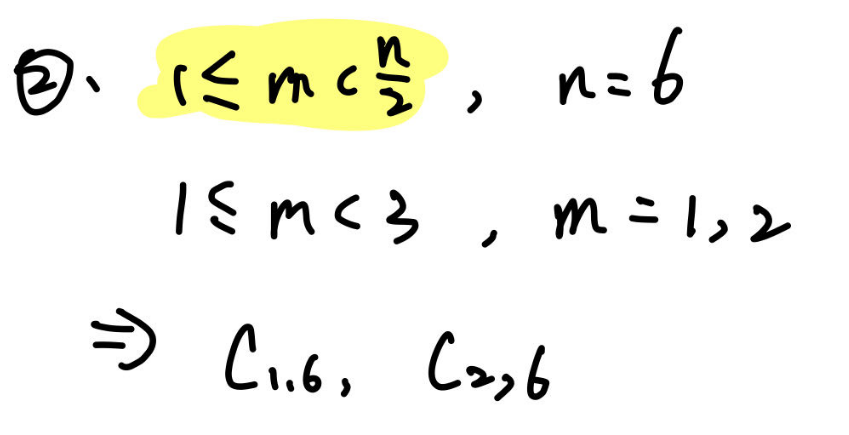 ②、 1 ≤ m < n/2 , n = 6
1 ≤ m < 3 , m = 1, 2
⇒ C₁.₆, C₂,₆